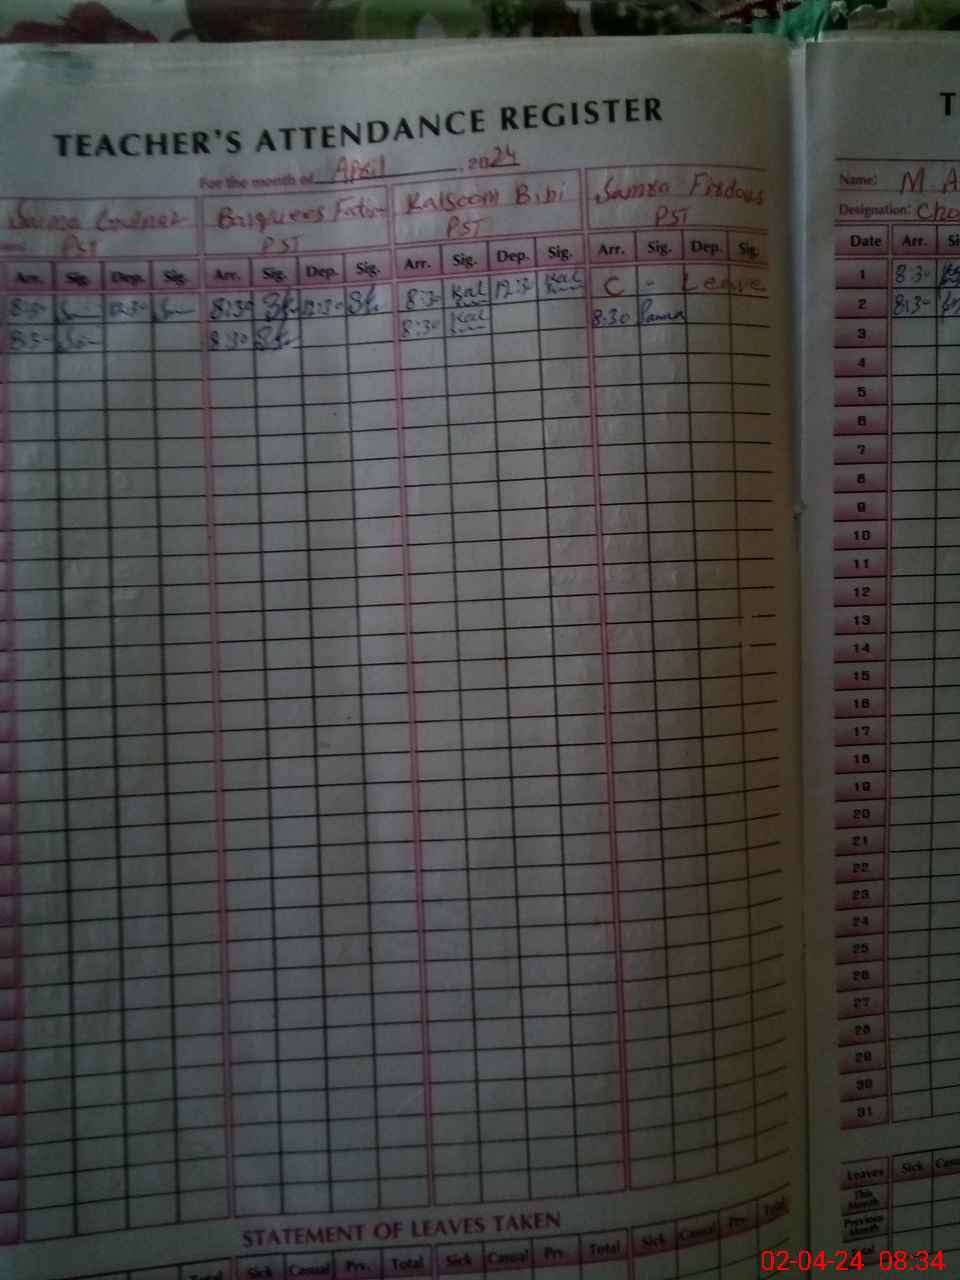 TEACHER'S ATTENDANCE REGISTER
For the month of April, 2024
Saima PST
Balquees Fatim PST
Kalsoom Bibi PST
Samra Firdous PST
Arr. Sig. Dep. Sig. Arr. Sig. Dep. Sig. Arr. Sig. Dep. Sig. Arr. Sig. Dep. Sig.
8:30 12:30 8:30 12:30 8:30 Kal 12:30 Kal C - Leave
8:30 8:30 8:30 Kal 8:30 Samra
STATEMENT OF LEAVES TAKEN
Total Sick Casual Prv. Total Sick Casual Prv. Total Sick Casual Prv. Total
T
Name: M.A
Designation: Cho
Date Arr. Si
1 8:30
2 8:30
3
4
5
6
7
8
9
10
11
12
13
14
15
16
17
18
19
20
21
22
23
24
25
26
27
28
29
30
31
Leaves Sick Casu
This Month
Previous Month
02-04-24 08:34